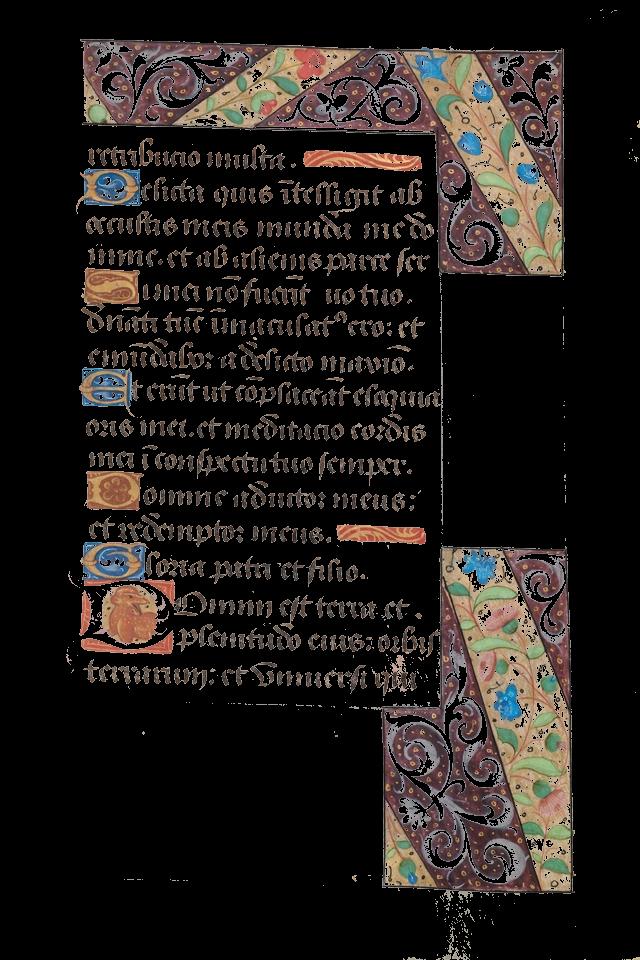 retribucio multa.
Delicta quis ītelligit ab
occultis meis munda me do
mine. et ab alienis parce ser
uo tuo. Si mei nō fuerīt
dn̄ati tūc īmaculatꝰ ero: et
emūdabor a delicto maxīo.
Et erūt ut cōplaceāt eloquia
oris mei. et meditacio cordis
mei ī conspectu tuo semper.
Domine adiutor meus:
et redemptor meus.
Gloria patri et filio.
Domini est terra et
plenitudo eius: orbis
terrarum: et vniuersi qui